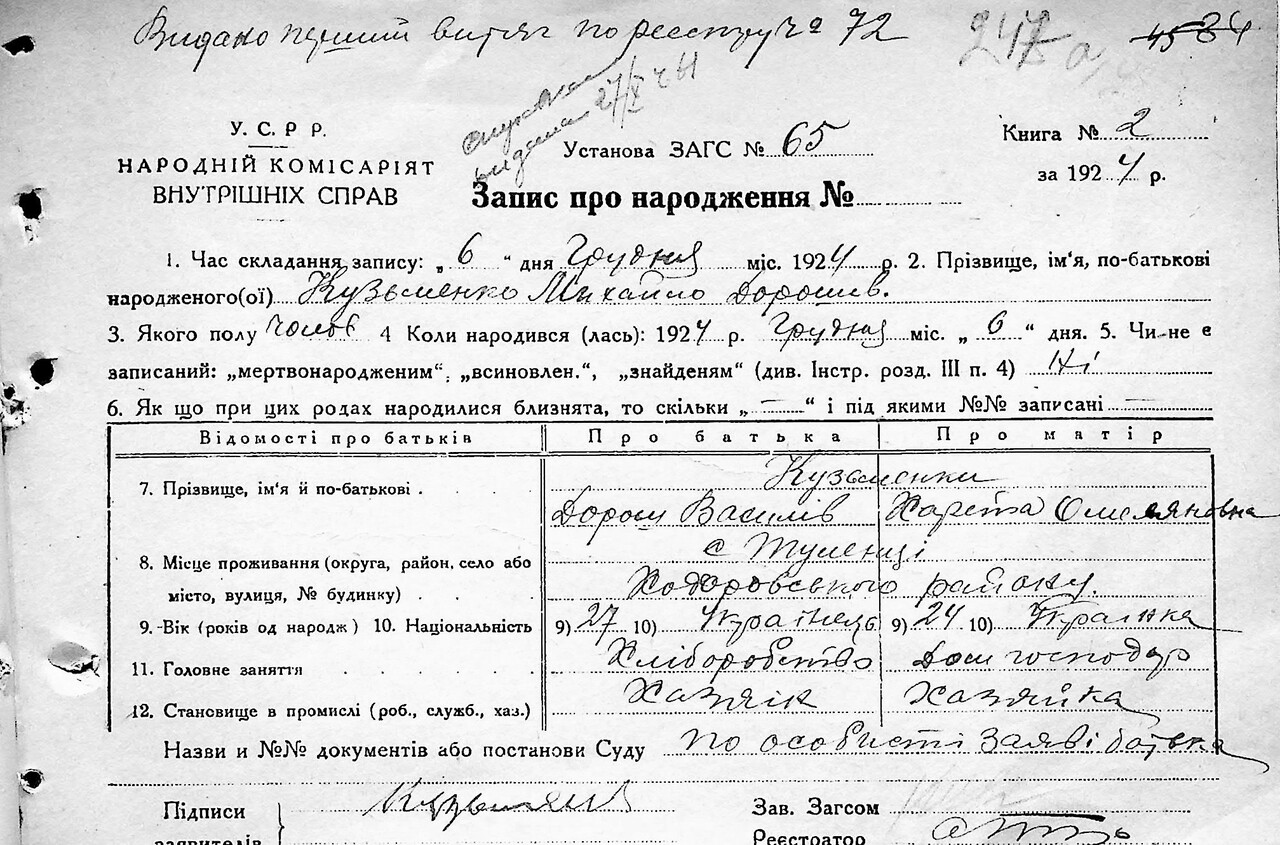 Видано перший витяг по реєстру № 72
247
45 84
видана 27/X 41
У. С. Р Р.
НАРОДНІЙ КОМІСАРІЯТ
ВНУТРІШНІХ СПРАВ
Установа ЗАГС № 65
Книга № 2
за 1924 р.
Запис про народження №
1. Час складання запису: „ 6 “ дня Грудня міс. 1924 р. 2. Прізвище, ім'я, по-батькові
народженого(ої) Кузьменко Михайло Дорошів.
3. Якого полу чолов 4 Коли народився (лась): 1924 р. Грудня міс. „ 6 “ дня. 5. Чи не є
записаний: „мертвонародженим“, „всиновлен.“, „знайденям“ (див. Інстр. розд. III п. 4) Ні
6. Як що при цих родах народилися близнята, то скільки „ — “ і під якими №№ записані —
Відомості про батьків Про батька Про матір
7. Прізвище, ім'я й по-батькові . Кузьменки
Дорош Василів Харета Омеляновна
8. Місце проживання (округа, район, село або с Туленці
місто, вулиця, № будинку) . . Ходоровського району.
9. Вік (років од народж) 10. Національність 9) 27 10) Українець 9) 24 10) Українка
11. Головне заняття . . . . Хліборобство Дом господар
12. Становище в промислі (роб., служб., хаз.) Хазяїн Хазяйка
Назви и №№ документів або постанови Суду по особисті заяві батька
Підписи Зав. Загсом
заявителів Реєстратор